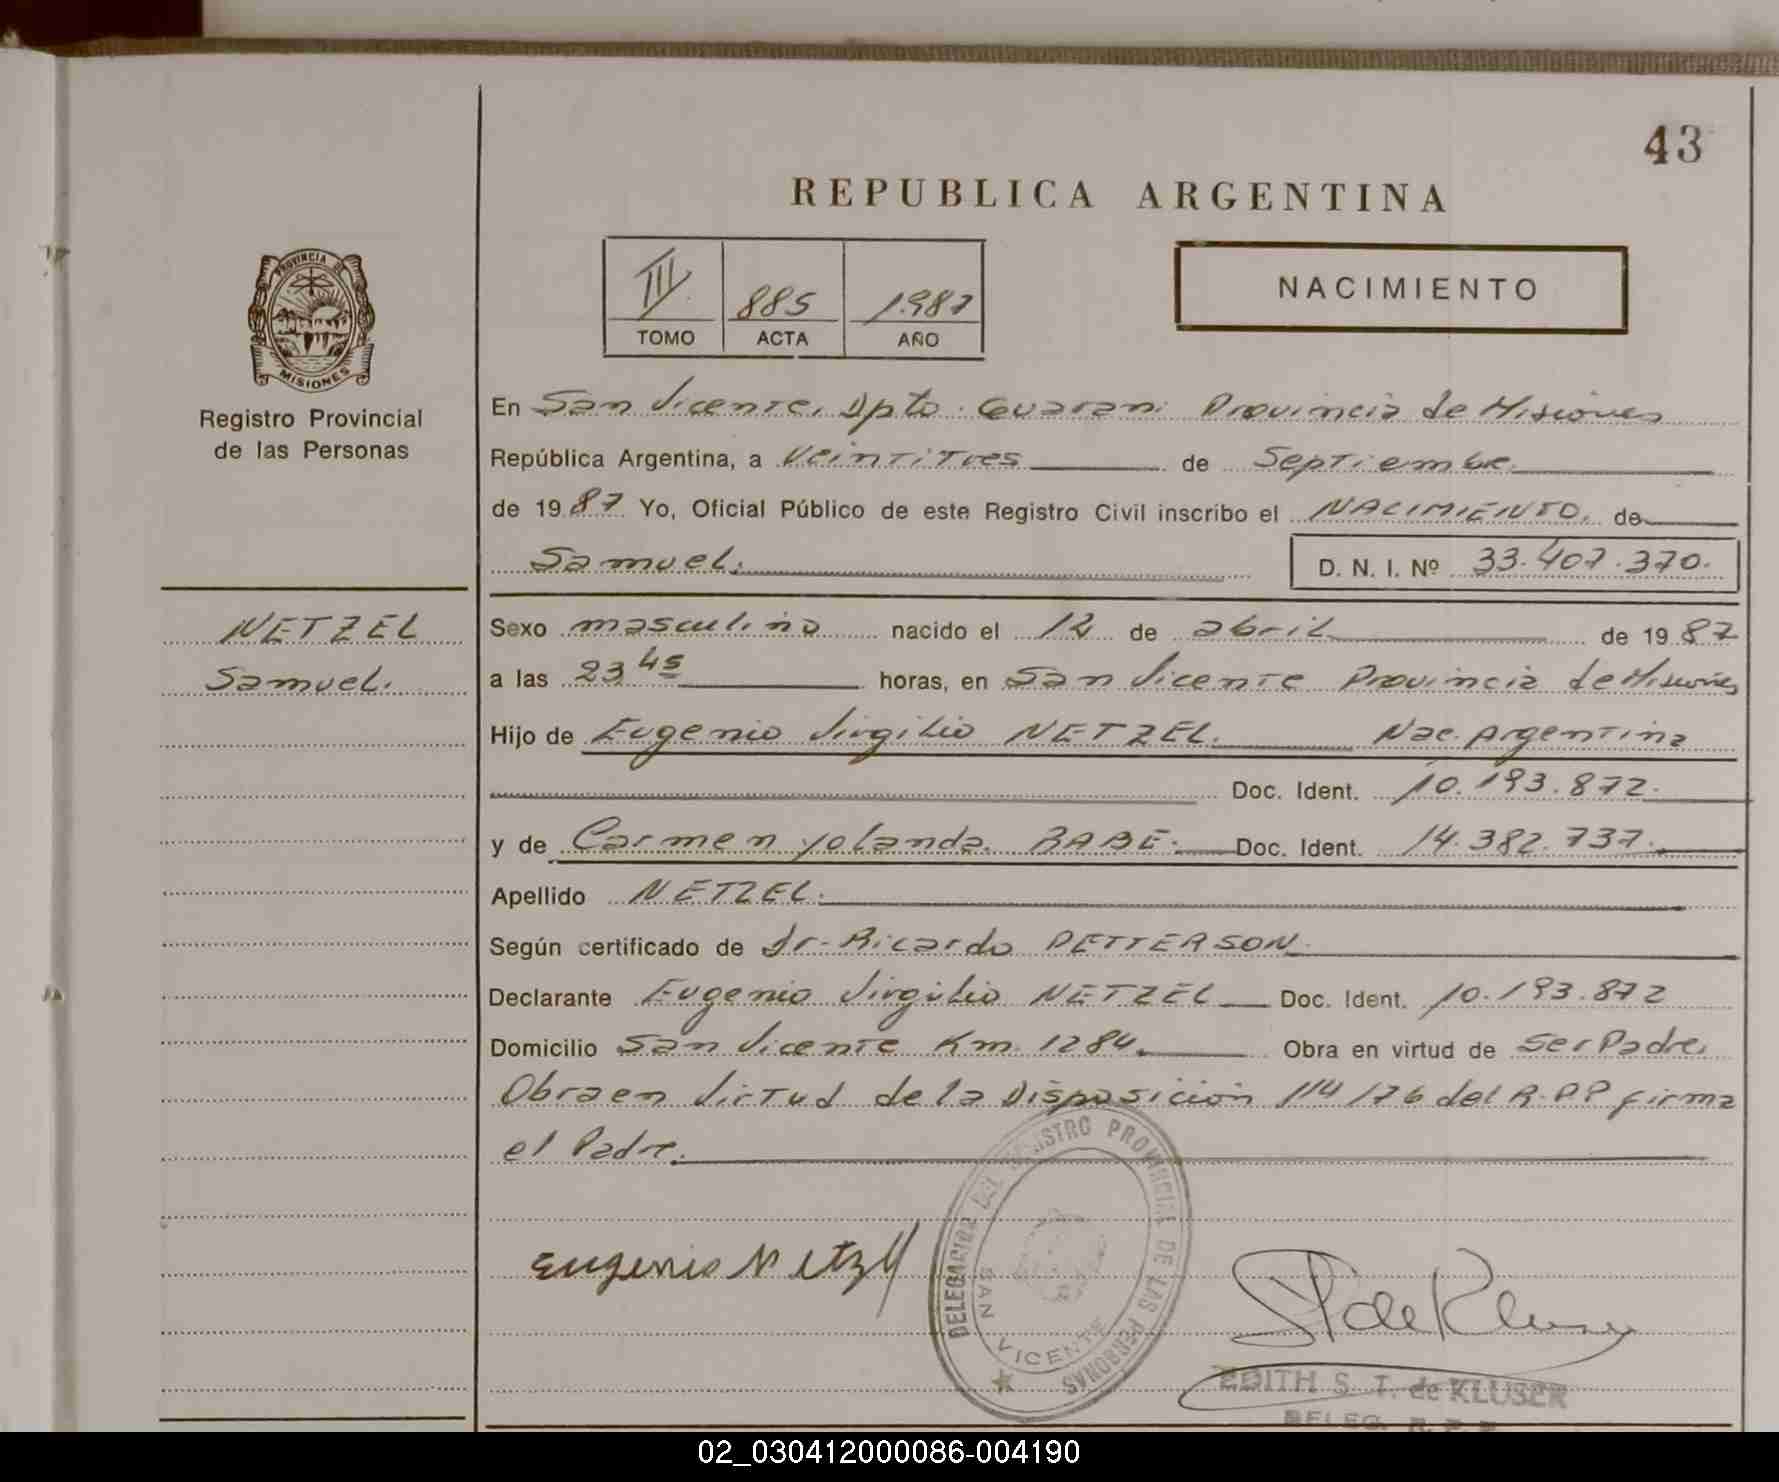 43
REPUBLICA ARGENTINA
PROVINCIA DE
MISIONES
Registro Provincial
de las Personas
III 885 1987
TOMO ACTA AÑO
NACIMIENTO
En San Vicente, Dpto. Guarani Provincia de Misiones
República Argentina, a Veintitres de Septiembre
de 1987 Yo, Oficial Público de este Registro Civil inscribo el NACIMIENTO. de
Samuel. D. N. I. Nº 33.407.370.
NETZEL
Samuel.
Sexo masculino nacido el 12 de abril de 1987
a las 23 45 horas, en San Vicente Provincia de Misiones
Hijo de Eugenio Virgilio NETZEL. Nac. Argentina
Doc. Ident. 10.193.872.
y de Carmen Yolanda RABE. Doc. Ident. 14.382.737.
Apellido NETZEL.
Según certificado de Dr. Ricardo PETTERSON.
Declarante Eugenio Virgilio NETZEL Doc. Ident. 10.193.872
Domicilio San Vicente Km. 1284. Obra en virtud de Ser Padre.
Obra en Virtud de la Disposición 114/76 del R.P.P firma
el Padre.
DELEGACION DEL REGISTRO PROVINCIAL DE LAS PERSONAS
SAN VICENTE
Eugenio Netzel
ST de Kluser
EDITH S. T. de KLUSER
DELEG. R. P. P.
02_030412000086-004190